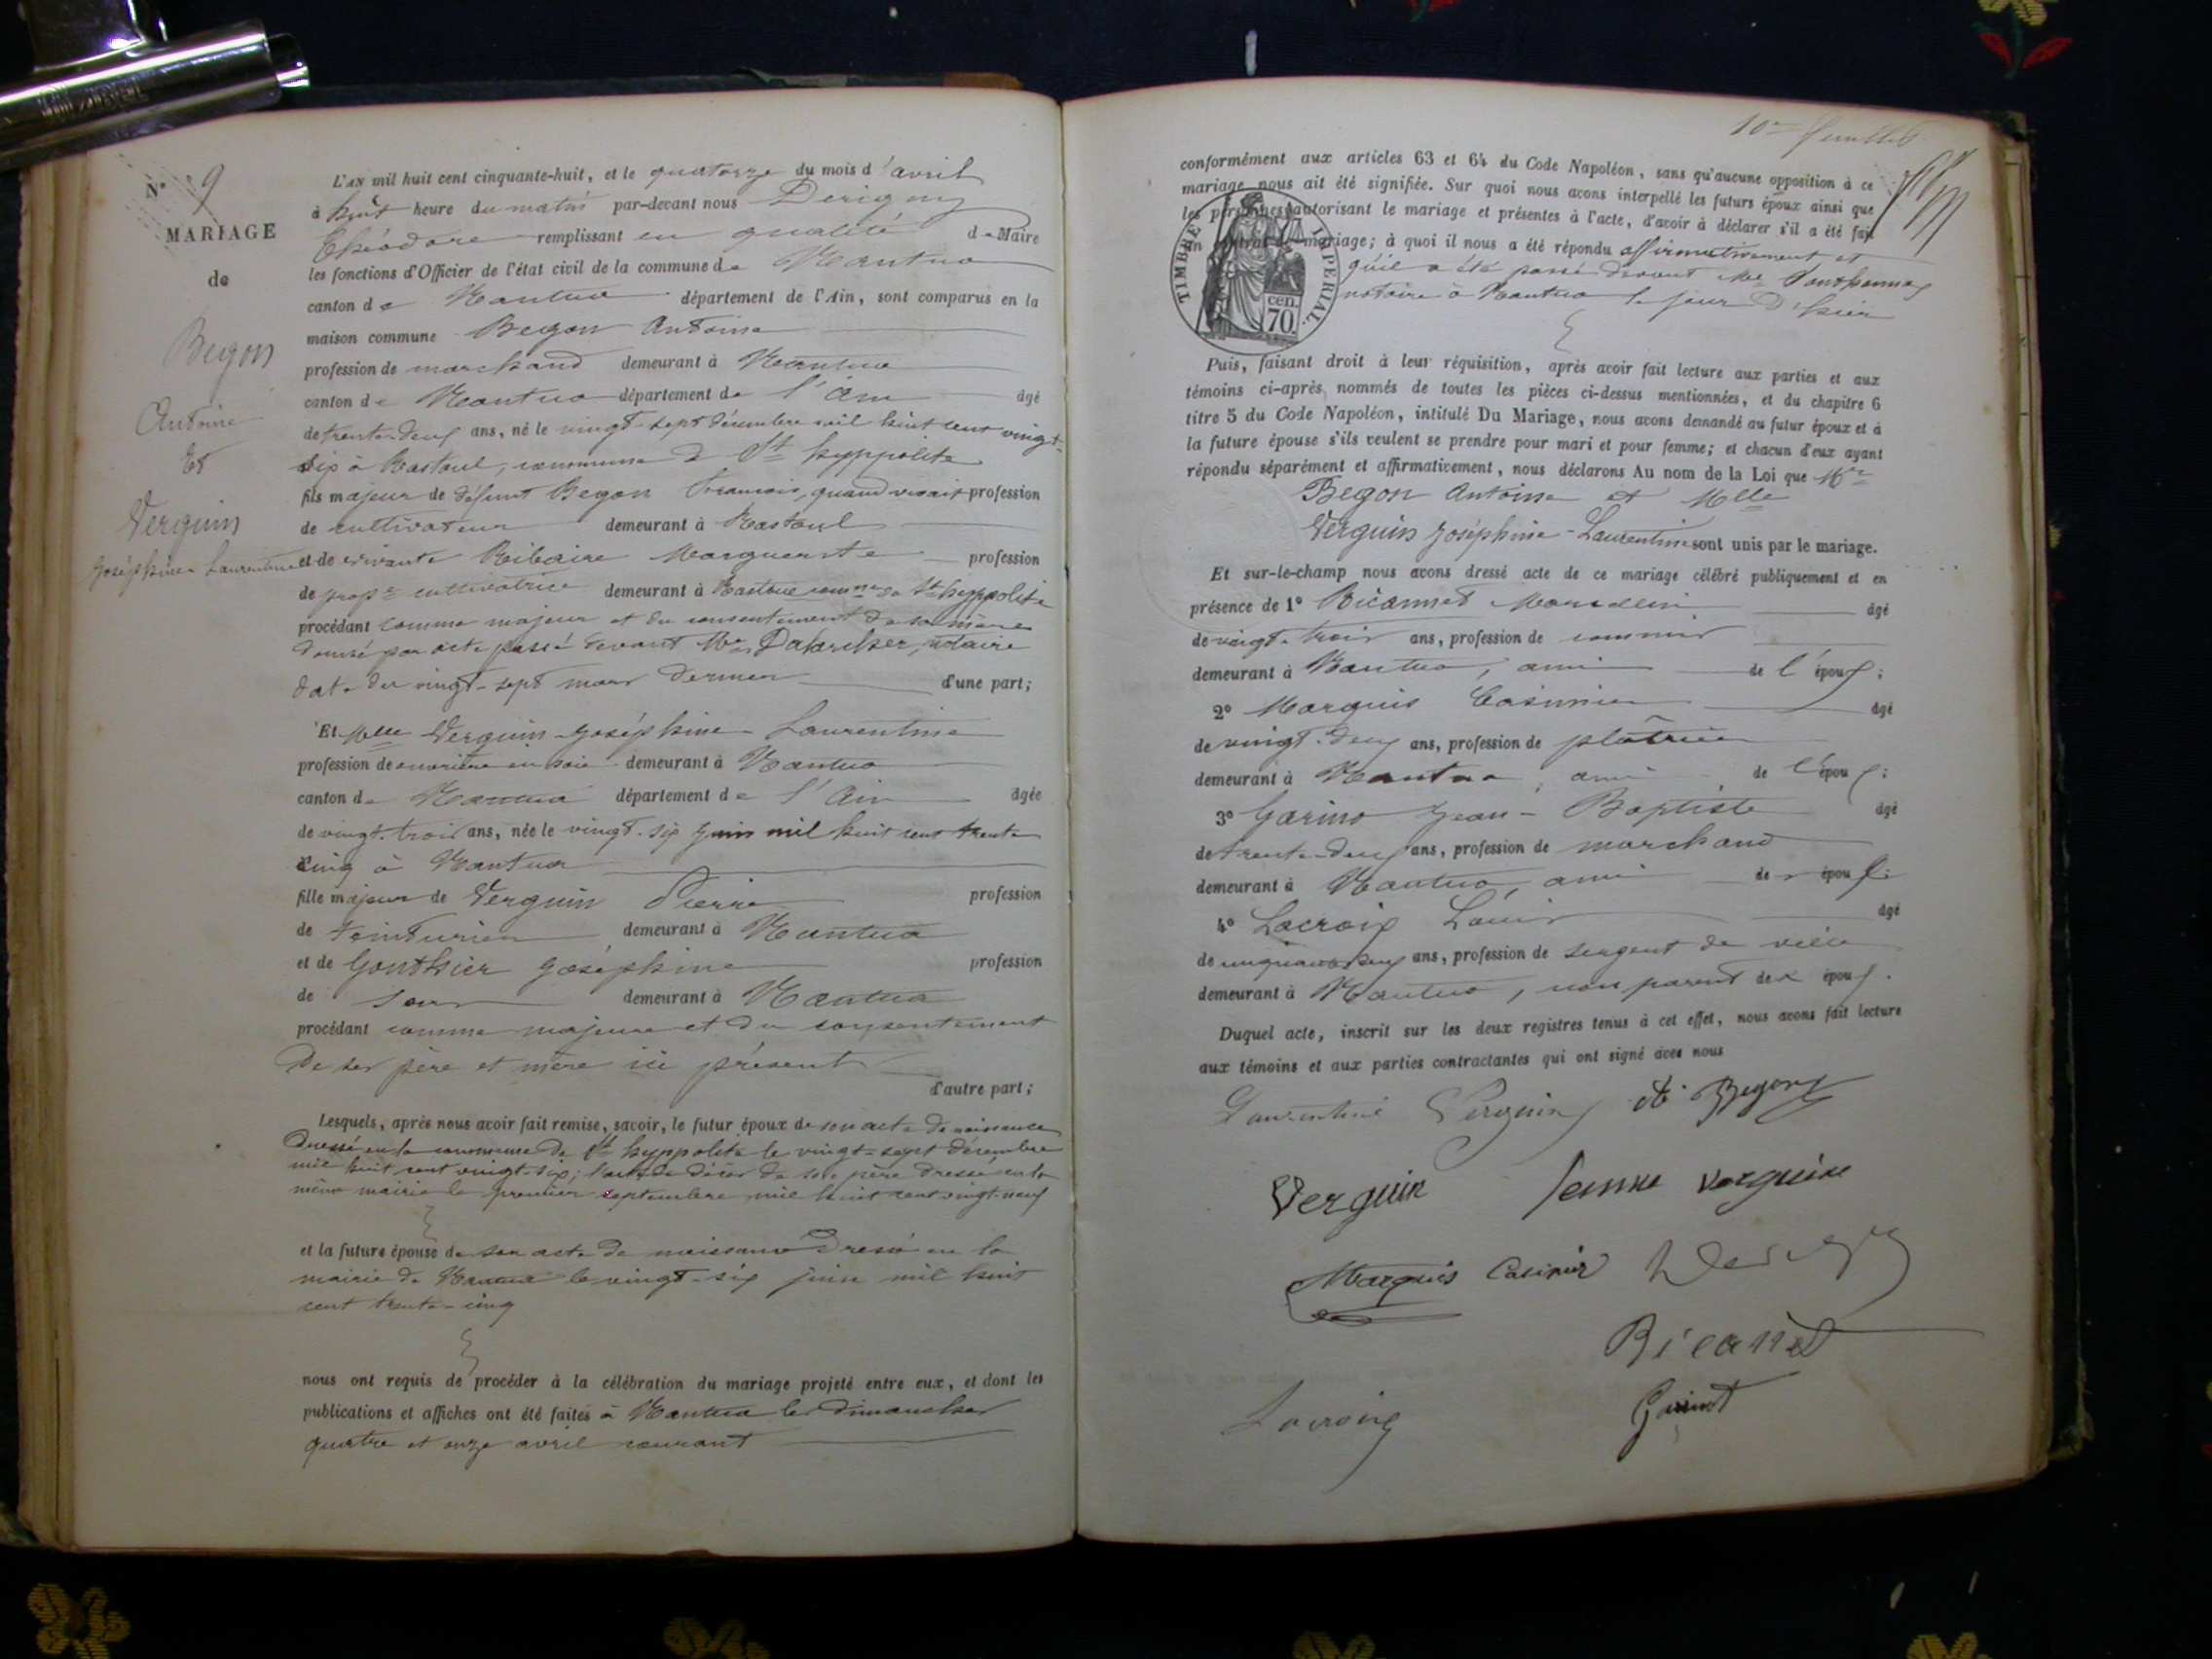 N° 9
MARIAGE
de
Begon
Antoine
Et
Verguin
Joséphine Laurentine
L'AN mil huit cent cinquante-huit, et le quatorze du mois d'avril
à huit heure du matin par-devant nous Derigny
Théodore remplissant en qualité de Maire
les fonctions d'Officier de l'état civil de la commune de Nantua
canton de Nantua département de l'Ain, sont comparus en la
maison commune Begon Antoine
profession de marchand demeurant à Nantua
canton de Nantua département de l'Ain âgé
de trente-deux ans, né le vingt-sept décembre mil huit cent vingt-
six à commune de St hyppolite
fils majeur de défunt Begon francois, quand vivait profession
de cultivateur demeurant à
et de vivante Ribaire Marguerite profession
de propre cultivatrice demeurant à comne de St hyppolite
procédant comme majeur et du consentement de sa mère
donné par acte passé devant Me notaire
date du vingt-sept mars dernier d'une part;
Et Melle Verguin Joséphine-Laurentine
profession de ouvrière en soie demeurant à Nantua
canton de Nantua département de l'Ain âgée
de vingt-trois ans, née le vingt-six juin mil huit cent trente
cinq à Nantua
fille majeure de Verguin Pierre profession
de teinturier demeurant à Nantua
et de Gonthier Joséphine profession
de demeurant à Nantua
procédant comme majeure et du consentement
de ses père et mère ici présent
d'autre part;
Lesquels, après nous avoir fait remise, savoir, le futur époux de son acte de naissance
Dressé en la commune de St hyppolite le vingt-sept décembre
mil huit cent vingt-six; l'acte de décès de son père dressé en la
même mairie le premier septembre mil huit cent vingt-neuf
et la future épouse de son acte de naissance Dressé en la
mairie de Nantua le vingt-six juin mil huit
cent trente-cinq
nous ont requis de procéder à la célébration du mariage projeté entre eux, et dont les
publications et affiches ont été faites à Nantua les dimanches
quatre et onze avril courant
10me feuillet
conformément aux articles 63 et 64 du Code Napoléon, sans qu'aucune opposition à ce
mariage nous ait été signifiée. Sur quoi nous avons interpellé les futurs époux ainsi que
les personnes autorisant le mariage et présentes à l'acte, d'avoir à déclarer s'il a été fait
un contrat de mariage; à quoi il nous a été répondu affirmativement et
qu'il a été passé devant Me
notaire à Nantua le jour d'hier
TIMBRE IMPERIAL.
70 cen.
Puis, faisant droit à leur réquisition, après avoir fait lecture aux parties et aux
témoins ci-après nommés de toutes les pièces ci-dessus mentionnées, et du chapitre 6
titre 5 du Code Napoléon, intitulé Du Mariage, nous avons demandé au futur époux et à
la future épouse s'ils veulent se prendre pour mari et pour femme; et chacun d'eux ayant
répondu séparément et affirmativement, nous déclarons Au nom de la Loi que Mr
Begon Antoine et Melle
Verguin Joséphine-Laurentine sont unis par le mariage.
Et sur-le-champ nous avons dressé acte de ce mariage célébré publiquement et en
présence de 1° Marcellin âgé
de vingt-trois ans, profession de commis
demeurant à Nantua, ami de l'époux;
2° Marquis Casimir âgé
de vingt-deux ans, profession de plâtrier
demeurant à Nantua, ami de l'époux;
3° Garino Jean-Baptiste âgé
de trente-deux ans, profession de marchand
demeurant à Nantua, ami de époux;
4° Lacroix Louis âgé
de ans, profession de sergent de ville
demeurant à Nantua, non parent des époux.
Duquel acte, inscrit sur les deux registres tenus à cet effet, nous avons fait lecture
aux témoins et aux parties contractantes qui ont signé avec nous
Laurentine Verguin At Begon
Verguin femme verguin
Marquis Casimir
Lacroix